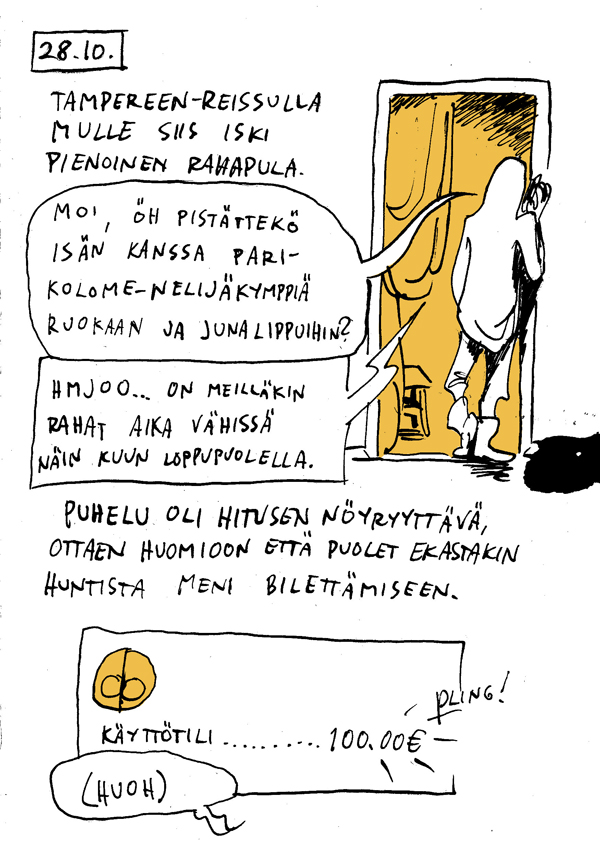 28.10.
TAMPEREEN-REISSULLA
MULLE SIIS ISKI
PIENOINEN RAHAPULA.
MOI, ÖH PISTÄTTEKÖ
ISÄN KANSSA PARI-
KOLOME-NELIJÄKYMPPIÄ
RUOKAAN JA JUNALIPPUIHIN?
HMJOO... ON MEILLÄKIN
RAHAT AIKA VÄHISSÄ
NÄIN KUUN LOPPUPUOLELLA.
PUHELU OLI HITUSEN NÖYRYYTTÄVÄ,
OTTAEN HUOMIOON ETTÄ PUOLET EKASTAKIN
HUNTISTA MENI BILETTÄMISEEN.
PLING!
KÄYTTÖTILI .......... 100.00€
(HUOH)